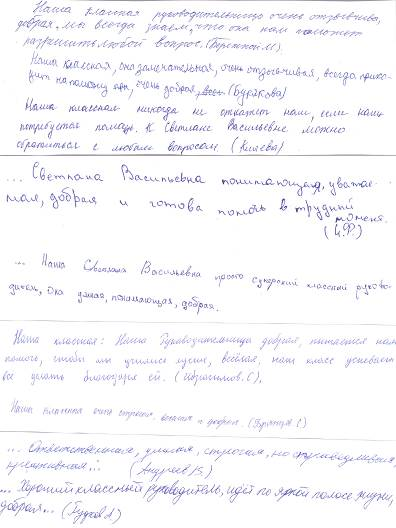 Наша классная руководительница очень отзывчива,
добрая, мы всегда знаем, что она нам поможет
разрешить любой вопрос. (
Наша классная, она замечательная, очень отзывчивая, всегда прихо-
дит на помощь, очень добрая, (Бурякова)
Наша классная никогда не откажет нам, если нам
потребуется помощь. К Светлане Васильевне можно
обратиться с любым вопросом (Князева)
... Светлана Васильевна понимающая, уважае-
мая, добрая и готова помочь в трудный
момент.
... Наша Светлана Васильевна просто суперский классный руково-
дитель, она умная, понимающая, добрая.
Наша классная: Наша Руководительница добрая, пытается нам
помочь, чтобы мы учились лучше, весёлая, наш класс успевает
все делать благодаря ей. (Ибрагимов. С),
Наша классная очень строгая, и добрая. (
... Ответственная, умная, строгая, но справедливая,
креативная... (Андреев
... Хороший классный руководитель, идёт по яркой полосе жизни,
добрая...